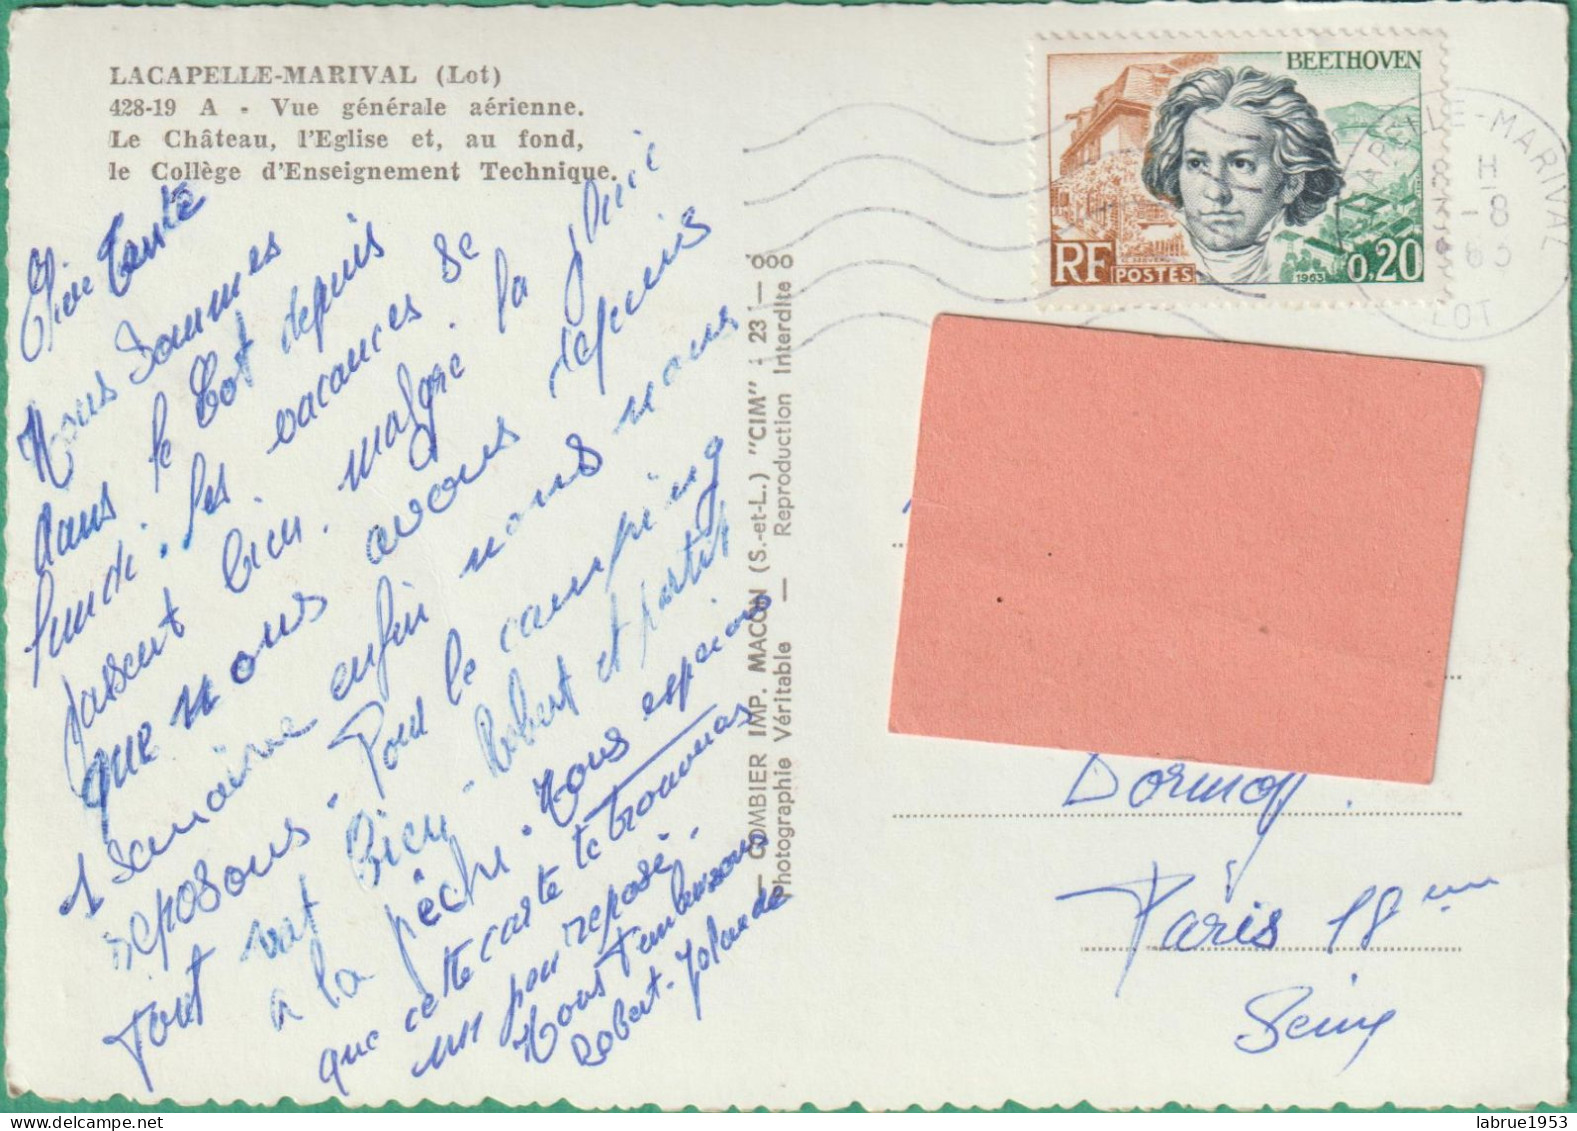 LACAPELLE-MARIVAL (Lot)
428-19 A - Vue générale aérienne.
Le Château, l'Eglise et, au fond,
le Collège d'Enseignement Technique.
Tante
Nous sommes
dans le Lot depuis
lundi. les vacances se
passent bien. malgré. la pluie
que nous avons depuis
1 semaine enfin nous nous
reposons. Pour le camping
Tout vat bien. Robert et partit
a la pêche. Nous esperions
que cette carte te trouveras
un peu reposé.
Nous t'embrassons
Robert. Yolande
— COMBIER IMP. MACON (S.-et-L.) "CIM" : 23 — 000
Photographie Véritable — Reproduction Interdite
BEETHOVEN
RF POSTES 1963 0,20
LACAPELLE-MARIVAL
H
-8
63
LOT
Dormoy.
Paris 18em
Seine
labrue1953